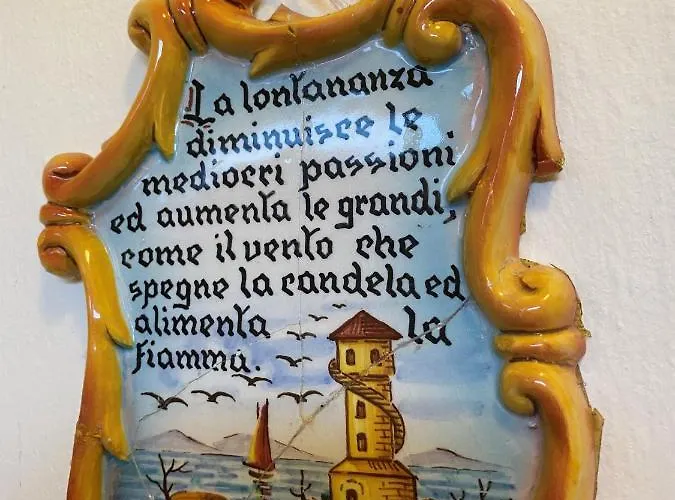 La lontananza
diminuisce le
mediocri passioni
ed aumenta le grandi,
come il vento che
spegne la candela ed
alimenta la
fiamma.